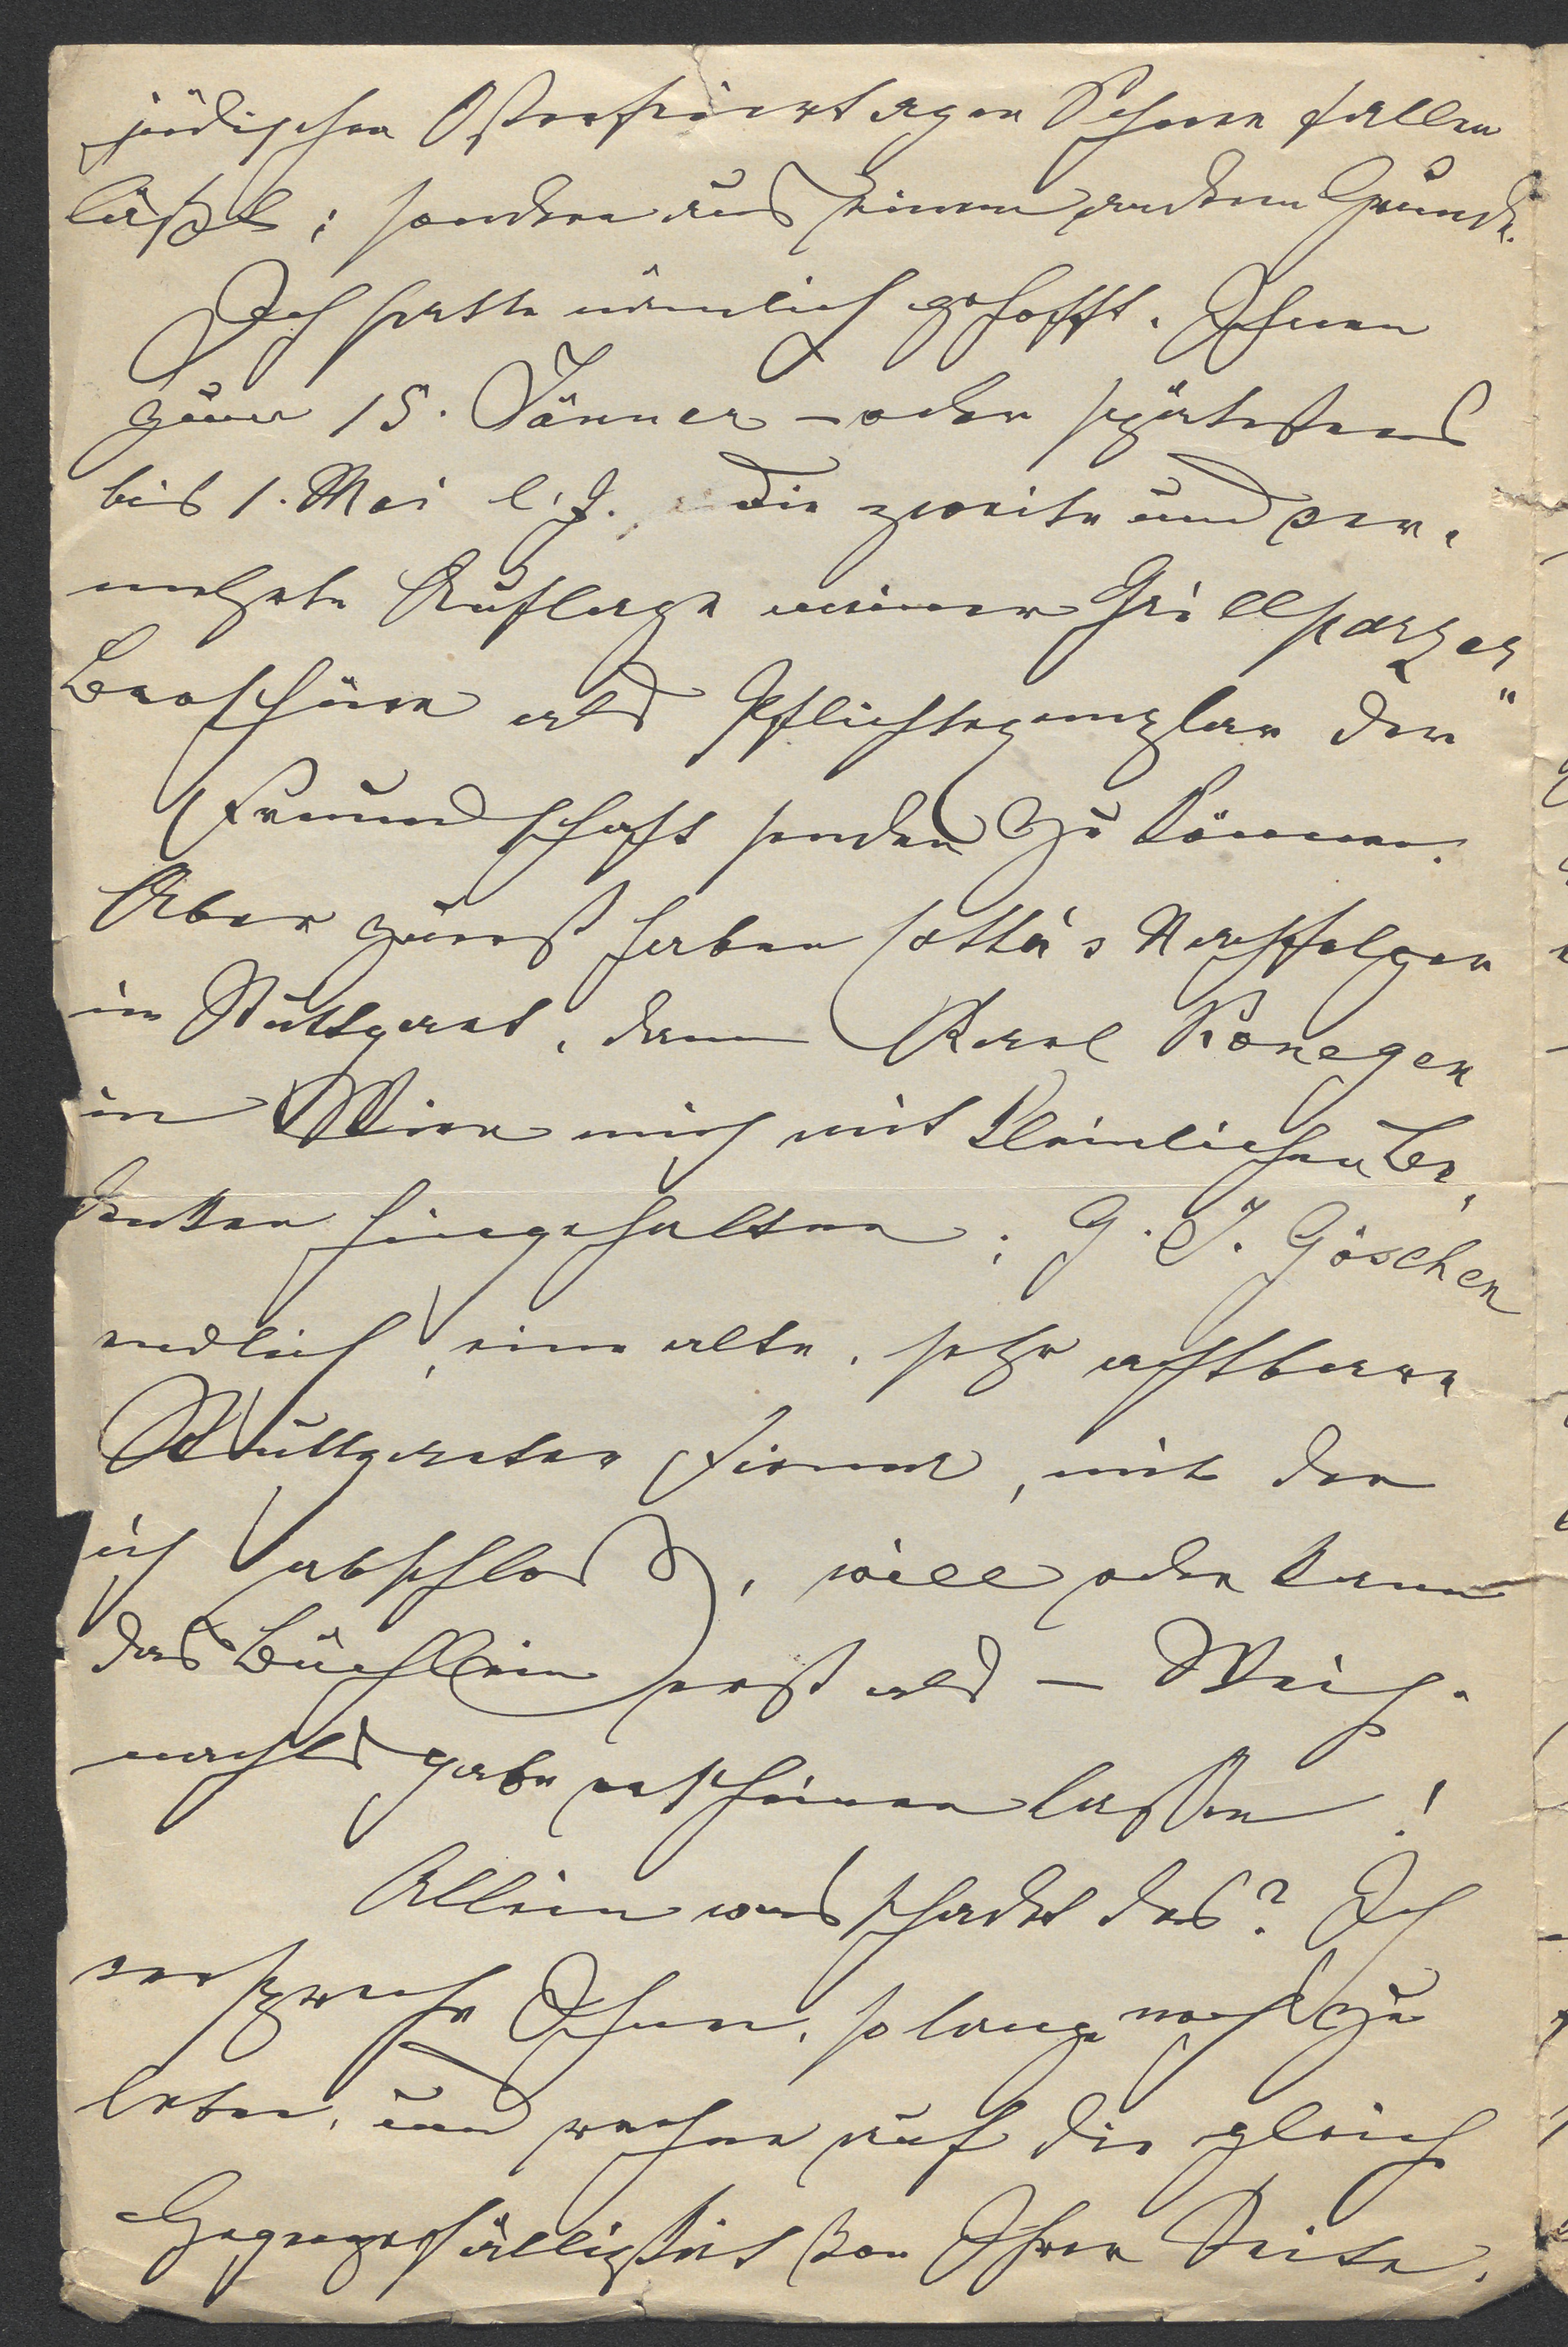 jüdischen Osterfeiertagen Schnee fallen
läßt; sondern aus einem andern Grunde.
Ich hatte nämlich gehofft, Ihnen
zum 15. Jänner – oder spätestens
bis 1. Mai l. J. die zweite und ver-
mehrte Auflage meiner Grillparzer
Broschüre als Pflichtexemplar der
Freundschaft senden zu können.
Aber zuerst haben Cotta's Nachfolger
in Stuttgart, dann Karl Konegen
in Wien mich mit kleinlichen Be-
denken hingehalten; G. J. Göschen
endlich, eine alte, sehr achtbare
Stuttgarter Firma, mit der
ich abschloß, will oder kann
das Büchlein erst als – Weih-
nachtsgabe erscheinen lassen!
Allein was schadet das? Ich
verspreche Ihnen, so lange noch zu
leben, und rechne auf die gleiche
Gegengefälligkeit von Ihrer Seite.